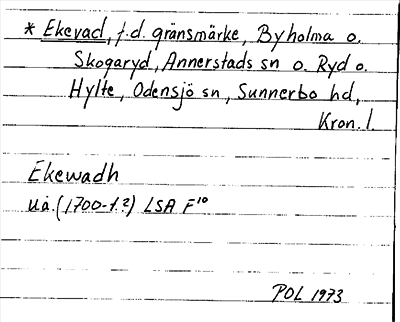 * Ekevad, f.d. gränsmärke, Byholma o.
Skogaryd, Annerstads sn o. Ryd o.
Hylte, Odensjö sn, Sunnerbo hd,
Kron. l.
Ekewadh
u.å. (1700-t.?) LSA F¹⁰
POL 1973